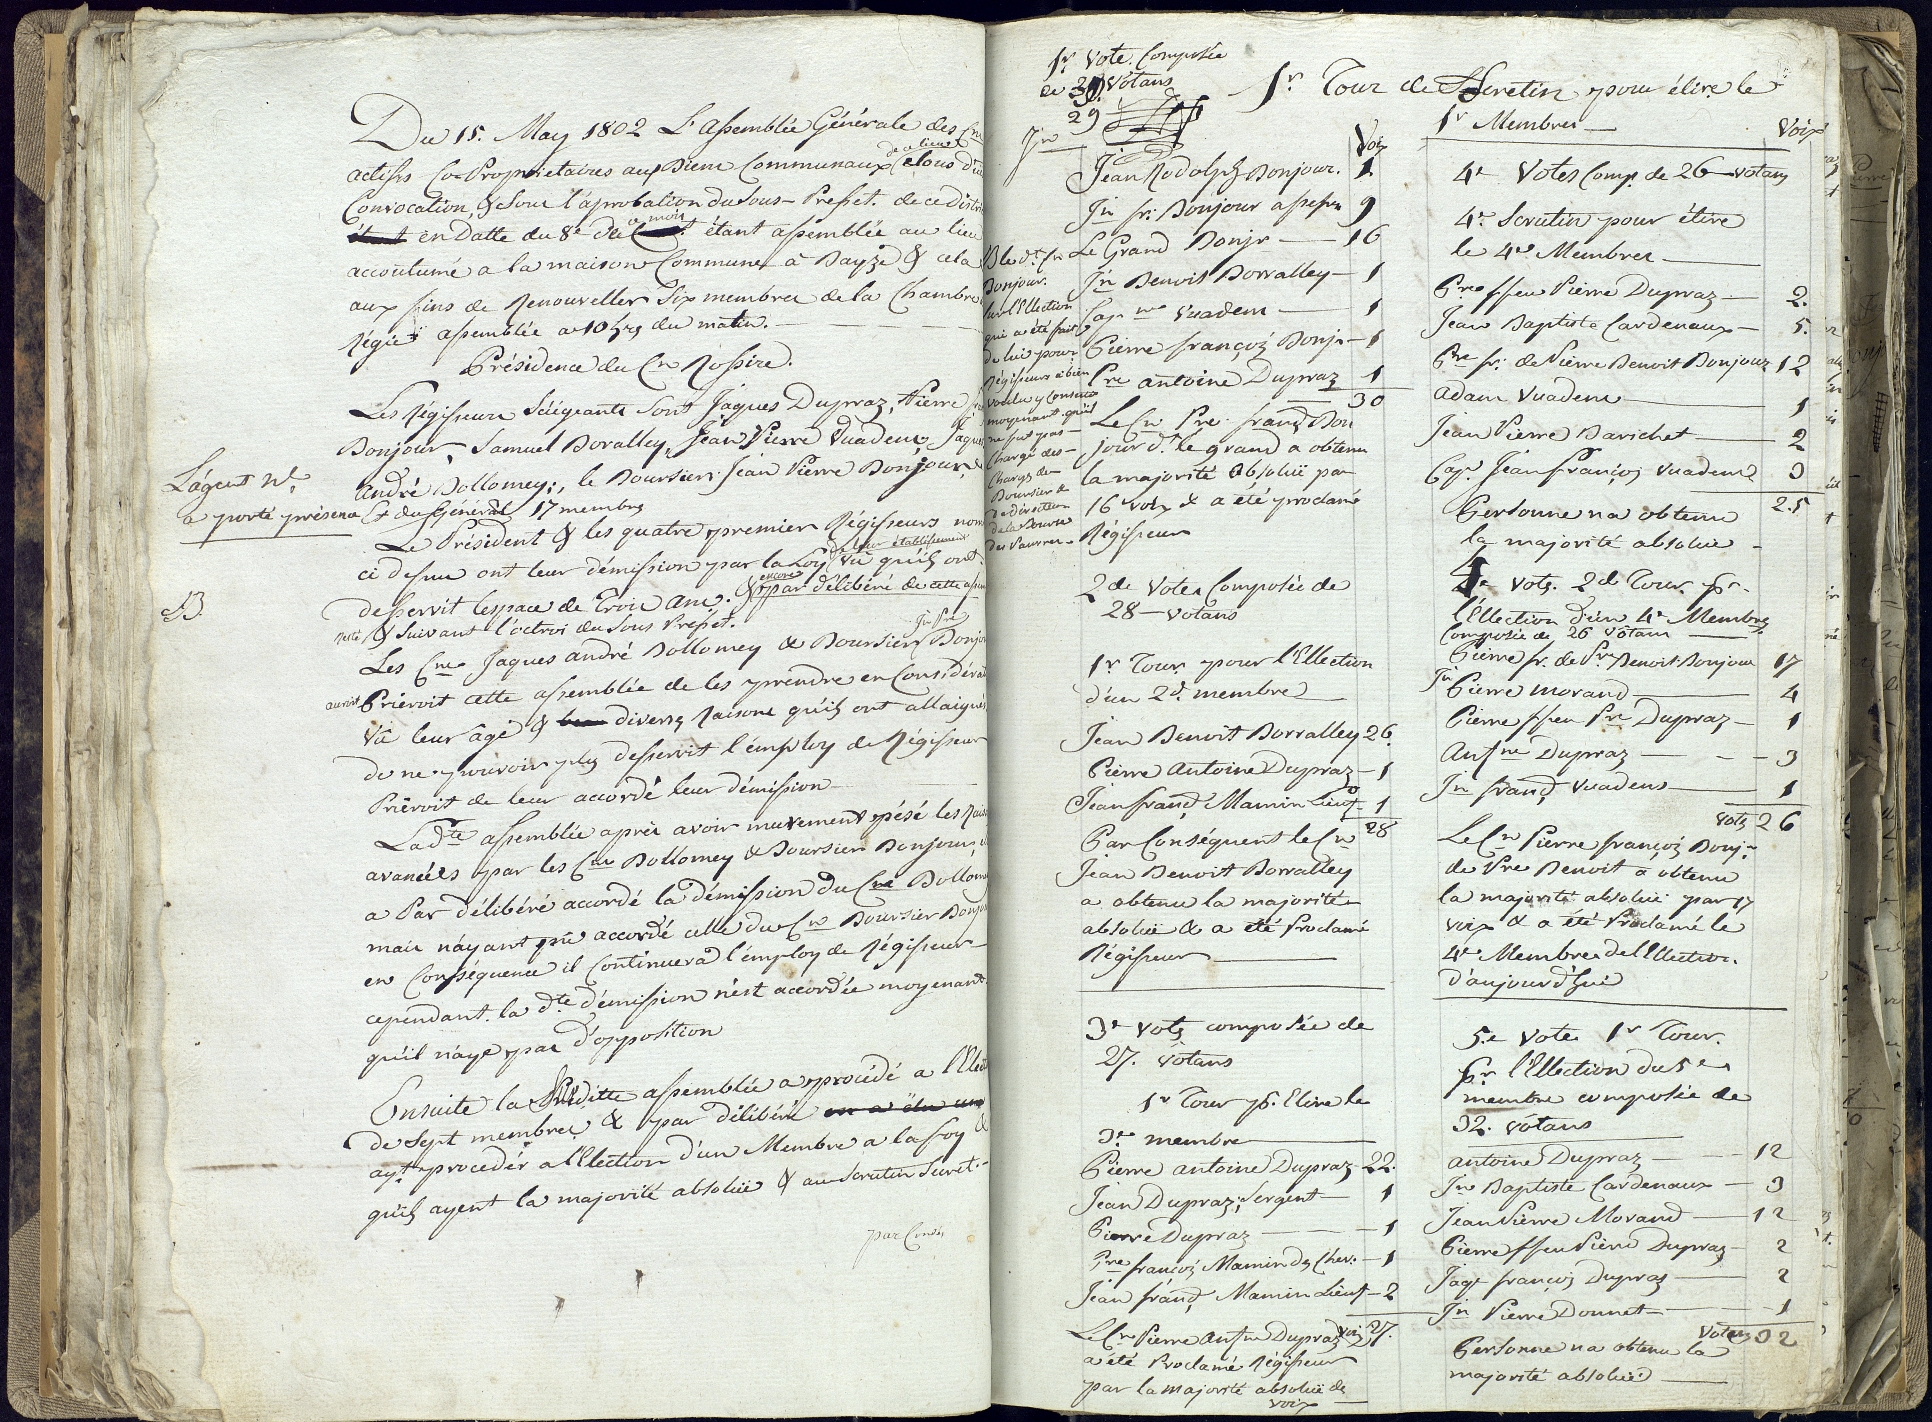 Du 15. May 1802 L'Assemblée Générale des Cns
actifs Co-Propriétaires aux Biens Communaux de ce lieu
Convocation, & sous l'aprobation du Sous-Prefet. de ce
en Datte du 8e du ce mois étant assemblée au lieu
accoutumé a la maison Commune à Vayze & cela
aux fins de Renouveller Six membres de la Chambre
Régie assemblée a 10 hrs du matin.
Présidence du Cn Rossire.
Les Régisseurs Séégeants sont Jaques Dupraz, Pierre
Bonjour, Samuel Boralley, Jean Pierre Vuadens, Jaques
André Dollomey; le Boursier Jean Pierre Bonjour,
L'agent Nl.
a porté présence
& du Général 17 membres
Le Président & les quatre premier Régisseurs nom
ci dessus ont leur démission par la Loy de leur établissement vu qu'ils ont
desservit l'espace de Trois Ans. & encore par délibéré de cette
NB.
& suivant l'octroi du Sous Préfet.
Les Cns Jaques André Dollomey & Boursier Jn Pre Bonjour
Priéroit cette assemblée de les prendre en Considéra
Vû leur âge & diverses Raisons qu'ils ont allaigués
de ne pouvoir plus desservit l'émploy de Régisseur
Priéroit de leur accordé leur démission
La dte assemblée après avoir murement pésé les Raisons
avancéés par les Cns Dollomey & Boursier Bonjour,
a Par délibéré accordé la démission du Cne Dollomey
mais n'ayant pas accordé celle du Cn Boursier Bonjour
en Conséquence il Continuera l'émploy de Régisseur
cependant. la dte démission n'est accordée moyenant
qu'il n'aye pas d'opposition
Ensuite la Susditte assemblée a procédé a l'Elect
de Sept membres & par délibéré
ayt procéder a l'Election d'un Membre a la foy &
qu'ils ayent la majorité absoluë & au Scrutin Secret.
1r. Vote Composée
de 30 Votans
29
1r Tour de Scretin pour élire le
1r Membre
Voix
Jean Rodolph Bonjour. 1
Jn fs. Bonjour assesr 9
Le Grand Bonjr 16
Jn Benoit Borralley 1
Cap. Vuadens 1
Pierre françois Bonjr 1
Pre antoine Dupraz 1
30
Bonjour.
sur l'Ellection
qui a été fait
de lui pour
Régisseur a bien
voulu y Consent
moyenant qu'il
ne fut pas
Chargé des
Charges de
Boursier &
de direction
de la Bourse
des Pauvres
Le Cn Pre franç Bon
jour dt le grand a obtenu
la majorité absoluë par
16 voix & a été proclamé
Régisseur
2de Vote Composée de
28 votans
1r Tour pour l'Ellection
d'un 2d. membre
Jean Benoit Borralley 26.
Pierre Antoine Dupraz 1
Jean franç Mamin Lieut 1
28
Par Conséquent le Cn
Jean Benoit Borralley
a obtenu la majorité
absoluë & a été Proclamé
Régisseur
3e Vote composée de
27. Votans
1r Tour pr. Elire le
3e membre
Pierre antoine Dupraz 22.
Jean Dupraz, Sergent 1
Pierre Dupraz 1
Pre françois Mamin ds Cher. 1
Jean franç Mamin Lieut 2
Voix 27.
Le Cn Pierre Antne Dupraz
a été Proclamé Régisseur
par la majorité absoluë de
voix
Voix
4e Votes Comp. de 26 votans
4e Scrutin pour élire
le 4e Membre
Pre ffeu Pierre Dupraz 2.
Jean Baptiste Cardenaux 5.
Pre fs. de Pierre Benoit Bonjour 12
Adam Vuadens 1
Jean Pierre Davichet 2
Cap. Jean françois Vuadens 3
25
Personne na obtenu
la majorité absoluë
4e Vote. 2d Tour. pr.
l'Ellection d'un 4e Membre
Composée de 26 Votans
Pierre fr. de Pre Benoit Bonjour 17
Jn Pierre Morand 4
Pierre ffeu Pre Dupraz 1
Antne Dupraz 3
Jn franç Vuadens 1
Vots 26
Le Cn Pierre françois Bonjr
de Pre Benoit a obtenu
la majorité absoluë par 17
voix & a été Proclamé le
4e Membre de l'Ellection
d'aujourd'hui
5.e Vote 1r Tour.
pr l'Ellection du 5e
membre composée de
32. votans
antoine Dupraz 12
Jn Baptiste Cardenaux 3
Jean Pierre Morand 12
Pierre ffeu Pierre Dupraz 2
Jaqe françois Dupraz 2
Jn Pierre Donnet 1
Votans 32
Personne na obtenu la
majorité absoluë